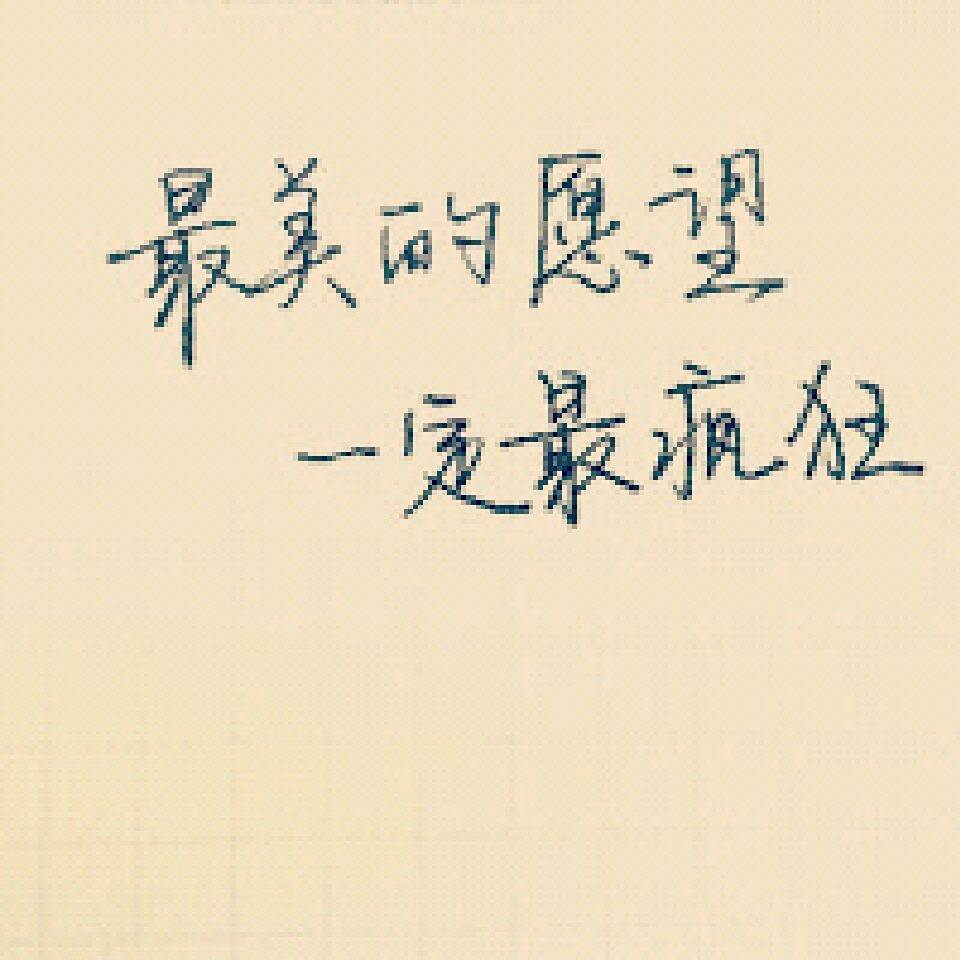 最美的愿望
一定最疯狂